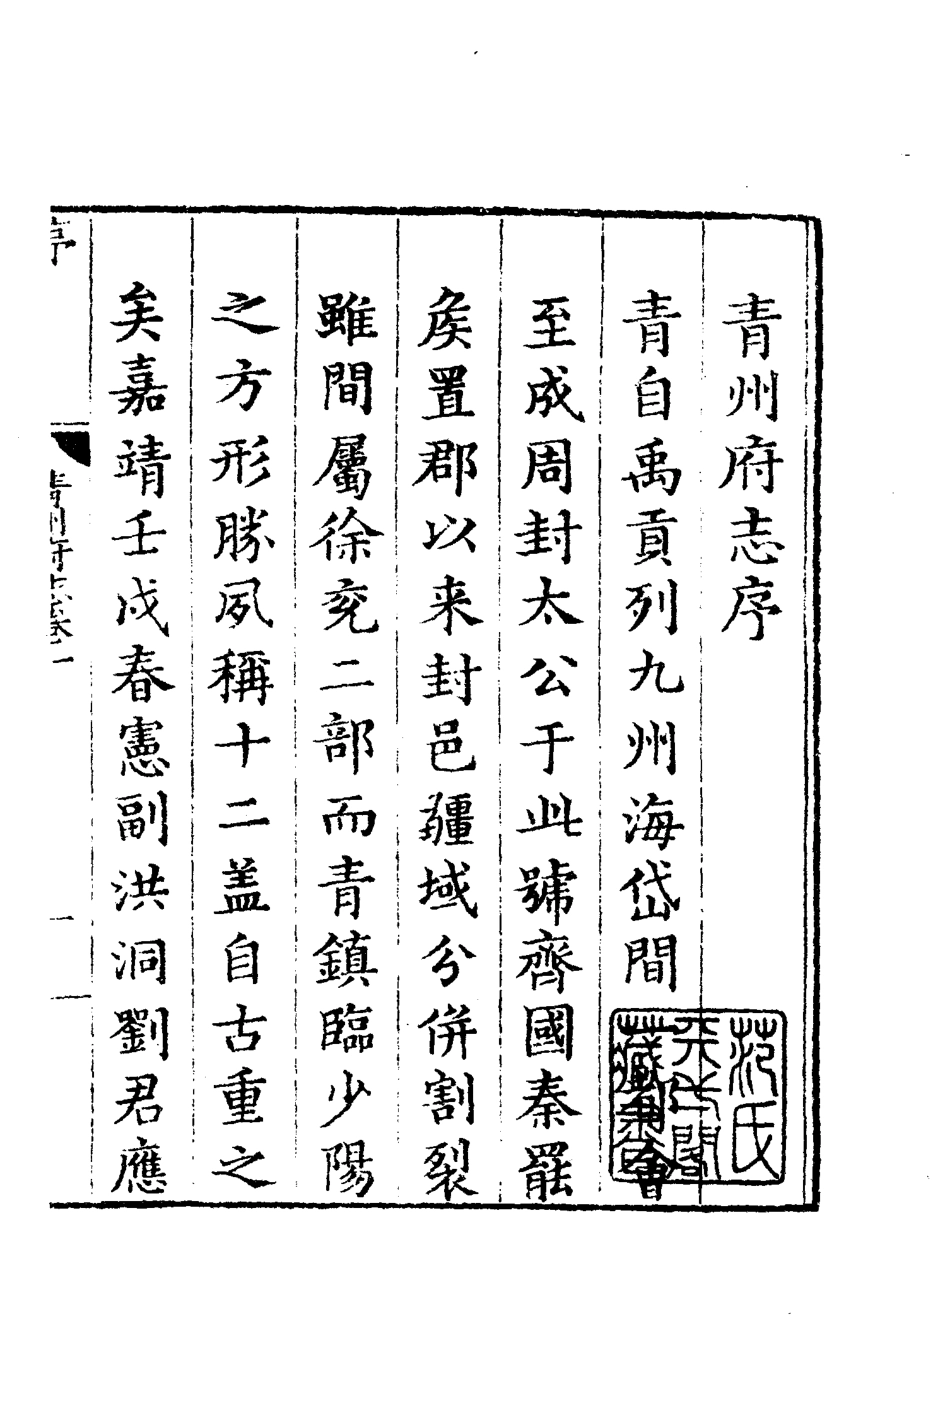 青州府志序
青自禹貢列九州海岱間
至成周封太公于此號齊國秦罷
矦置郡以来封邑疆域分併割裂
雖間屬徐兖二部而青鎮臨少陽
之方形勝夙稱十二盖自古重之
矣嘉靖壬戌春憲副洪洞劉君應
序
青州府志卷一
一
范氏
天一閣
藏書